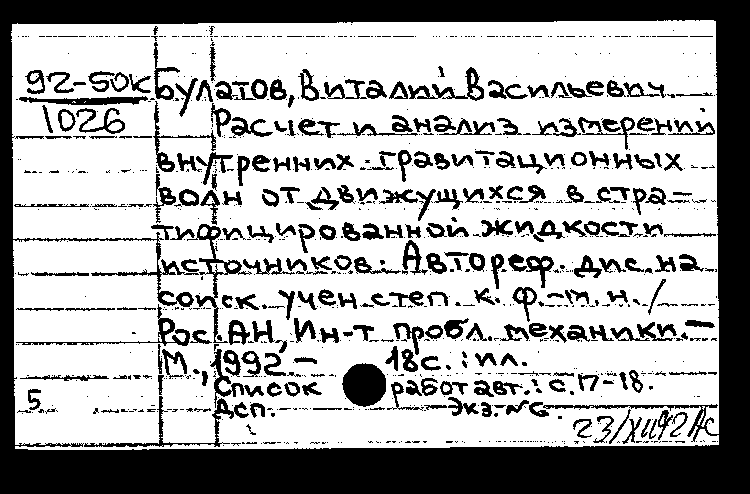 92-50к Булатов, Виталий Васильевич.
1026 Расчет и анализ измерений
внутренних гравитационных
волн от движущихся в стра-
тифицированной жидкости
источников: Автореф. дис. на
соиск. учен. степ. к. ф.-м. н. /
Рос. АН, Ин-т пробл. механики. —
М., 1992. — 18 с. : ил.
Список работ авт.: с. 17-18.
5 Дсп. Экз. №6.
23/XII 92